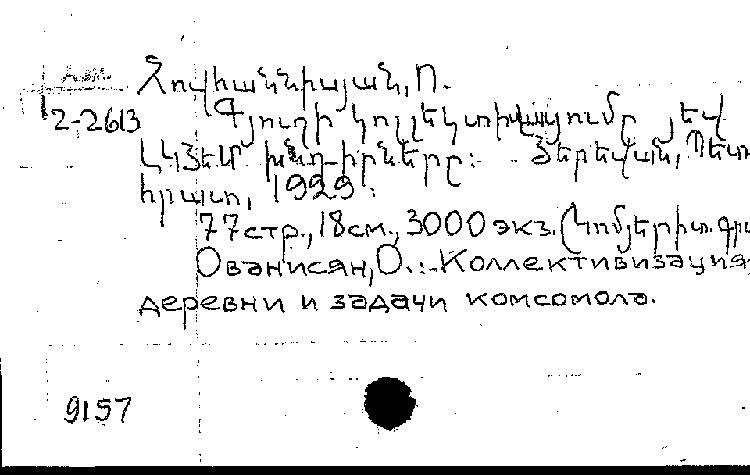 Հովհաննիսյան, Ո.
2-2613 Գյուղի կոլլեկտիվացումը յեվ
ԼԿՅԵՄ խնդիրները: Յերեվան, Պետ
հրատ, 1929:
77 стр., 18 см., 3000 экз. (Կոմյերիտ. գր
Ованисян, О.: Коллективизация
деревни и задачи комсомола.
9157